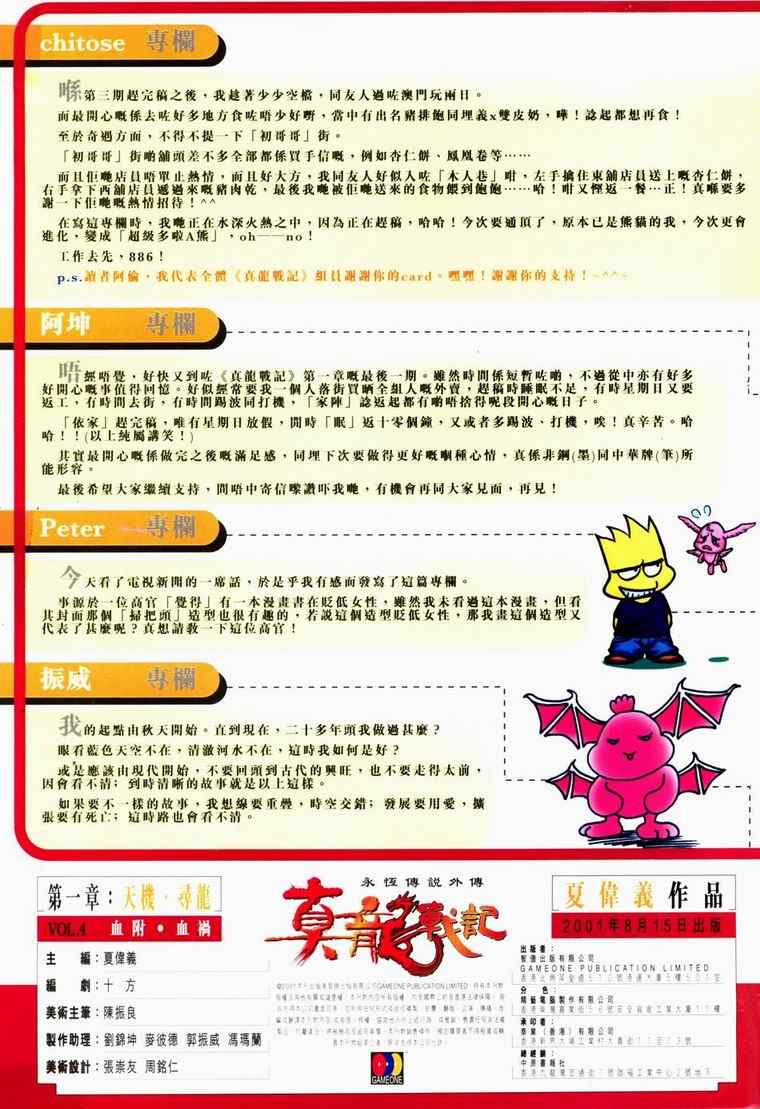 chitose 專欄
喺第三期趕完稿之後，我趁著少少空檔，同友人過咗澳門玩兩日。
而最開心嘅係去咗好多地方食咗唔少好嘢，當中有出名豬排飽同埋義x雙皮奶，嘩！諗起都想再食！
至於奇遇方面，不得不提一下「初哥哥」街。
「初哥哥」街啲舖頭差不多全部都係買手信嘅，例如杏仁餅、鳳凰卷等……
而且佢哋店員唔單止熱情，而且好大方，我同友人好似人咗「木人巷」咁，左手擒住東舖店員送上嘅杏仁餅，
右手拿下西舖店員遞過來嘅豬肉乾，最後我哋被佢哋送來的食物餵到飽飽……哈！咁又慳返一餐…正！真喺要多
謝一下佢哋嘅熱情招待！^^
在寫這專欄時，我哋正在水深火熱之中，因為正在趕稿，哈哈！今次要通頂了，原本已是熊貓的我，今次更會
進化，變成「超級多啦A熊」，oh——no！
工作去先、886！
p.s.讀者阿倫，我代表全體《真龍戰記》組員謝謝你的card。嘿嘿！謝謝你的支持！~^^~
阿坤 專欄
唔經唔覺，好快又到咗《真龍戰記》第一章嘅最後一期。雖然時間係短暫咗啲，不過從中亦有好多
好開心嘅事值得回憶。好似經常要我一個人落街買晒全組人嘅外賣，趕稿時睡眠不足，有時星期日又要
返工，有時間去街，有時間踢波同打機，「家陣」諗返起都有啲唔捨得呢段開心嘅日子。
「依家」趕完稿，唯有星期日放假，閒時「眠」返十零個鐘，又或者多踢波、打機，唉！真辛苦。哈
哈！！(以上純屬講笑！)
其實最開心嘅係做完之後嘅滿足感，同埋下次要做得更好嘅嗰種心情，真係非鋼(墨)同中華牌(筆)所
能形容。
最後希望大家繼續支持，閒唔中寄信嚟讚吓我哋，有機會再同大家見面，再見！
Peter 專欄
今天看了電視新聞的一席話，於是乎我有感而發寫了這篇專欄。
事源於一位高官「覺得」有一本漫畫書在貶低女性，雖然我未看過這本漫畫，但看
其封面那個「掃把頭」造型也很有趣的，若說這個造型貶低女性，那我畫這個造型又
代表了甚麼呢？真想請教一下這位高官！
振威 專欄
我的起點由秋天開始。直到現在，二十多年頭我做過甚麼？
眼看藍色天空不在，清澈河水不在，這時我如何是好？
或是應該由現代開始，不要回頭到古代的興旺，也不要走得太前，
因會看不清；到時清晰的故事就是以上這樣。
如果要不一樣的故事，我想線要重疊，時空交錯；發展要用愛，擴
張要有死亡；這時路也會看不清。
第一章：天機·尋龍
VOL.4 血附·血禍
主編：夏偉義
編劇：十方
美術主筆：陳振良
製作助理：劉錦坤 麥彼德 郭振威 馮瑪蘭
美術設計：張崇友 周銘仁
永恆傳說外傳
真龍戰記
GAMEONE
夏偉義作品
2001年8月15日出版
出版者：
智傲出版有限公司
GAMEONE PUBLICATION LIMITED
分色：
精藝電腦製作有限公司
承印者：
泰業（香港）有限公司
總經銷：
中原書報社